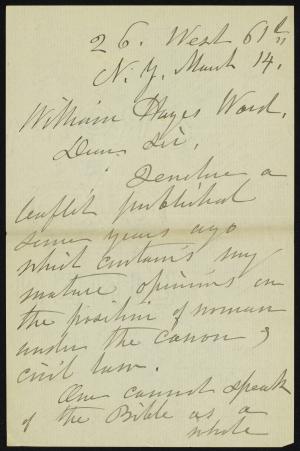 26. West 61st
N.Y. March 14.
William Hayes Ward.
Dear Sir,
I enclose a
leaflet published
some years ago
which contains my
mature opinions on
the position of woman
under the canon &
civil law.
One cannot speak
of the Bible as a
whole